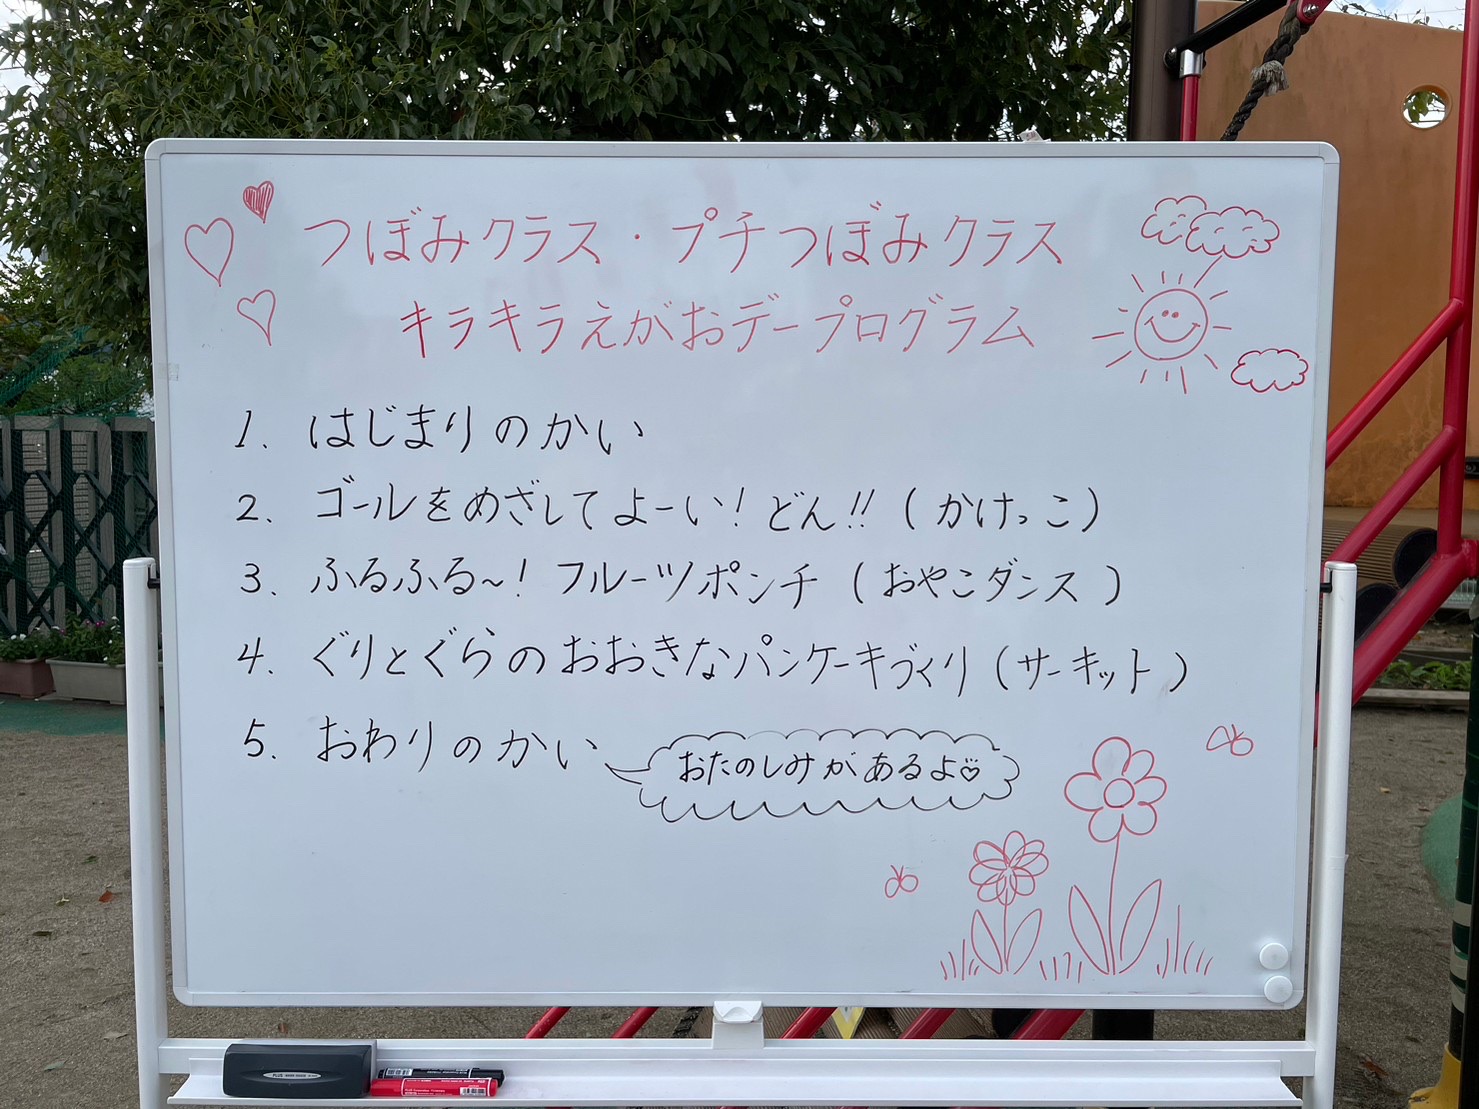 つぼみクラス・プチつぼみクラス
キラキラえがおデープログラム
1. はじまりのかい
2. ゴールをめざしてよーい!どん!!(かけっこ)
3. ふるふる~!フルーツポンチ(おやこダンス)
4. ぐりとぐらのおおきなパンケーキづくり(サーキット)
5. おわりのかい
おたのしみがあるよ♡
PLUS